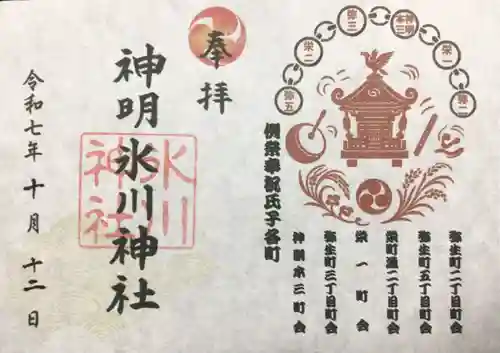 奉拝
神明氷川神社
氷川
神社
令和七年十月十二日
弥三
神明
本三
栄一
弥二
栄二
弥五
例祭奉祝氏子各町
弥生町二丁目町会
弥生町五丁目町会
栄町通二丁目町会
栄一町会
弥生町三丁目町会
神明本三町会